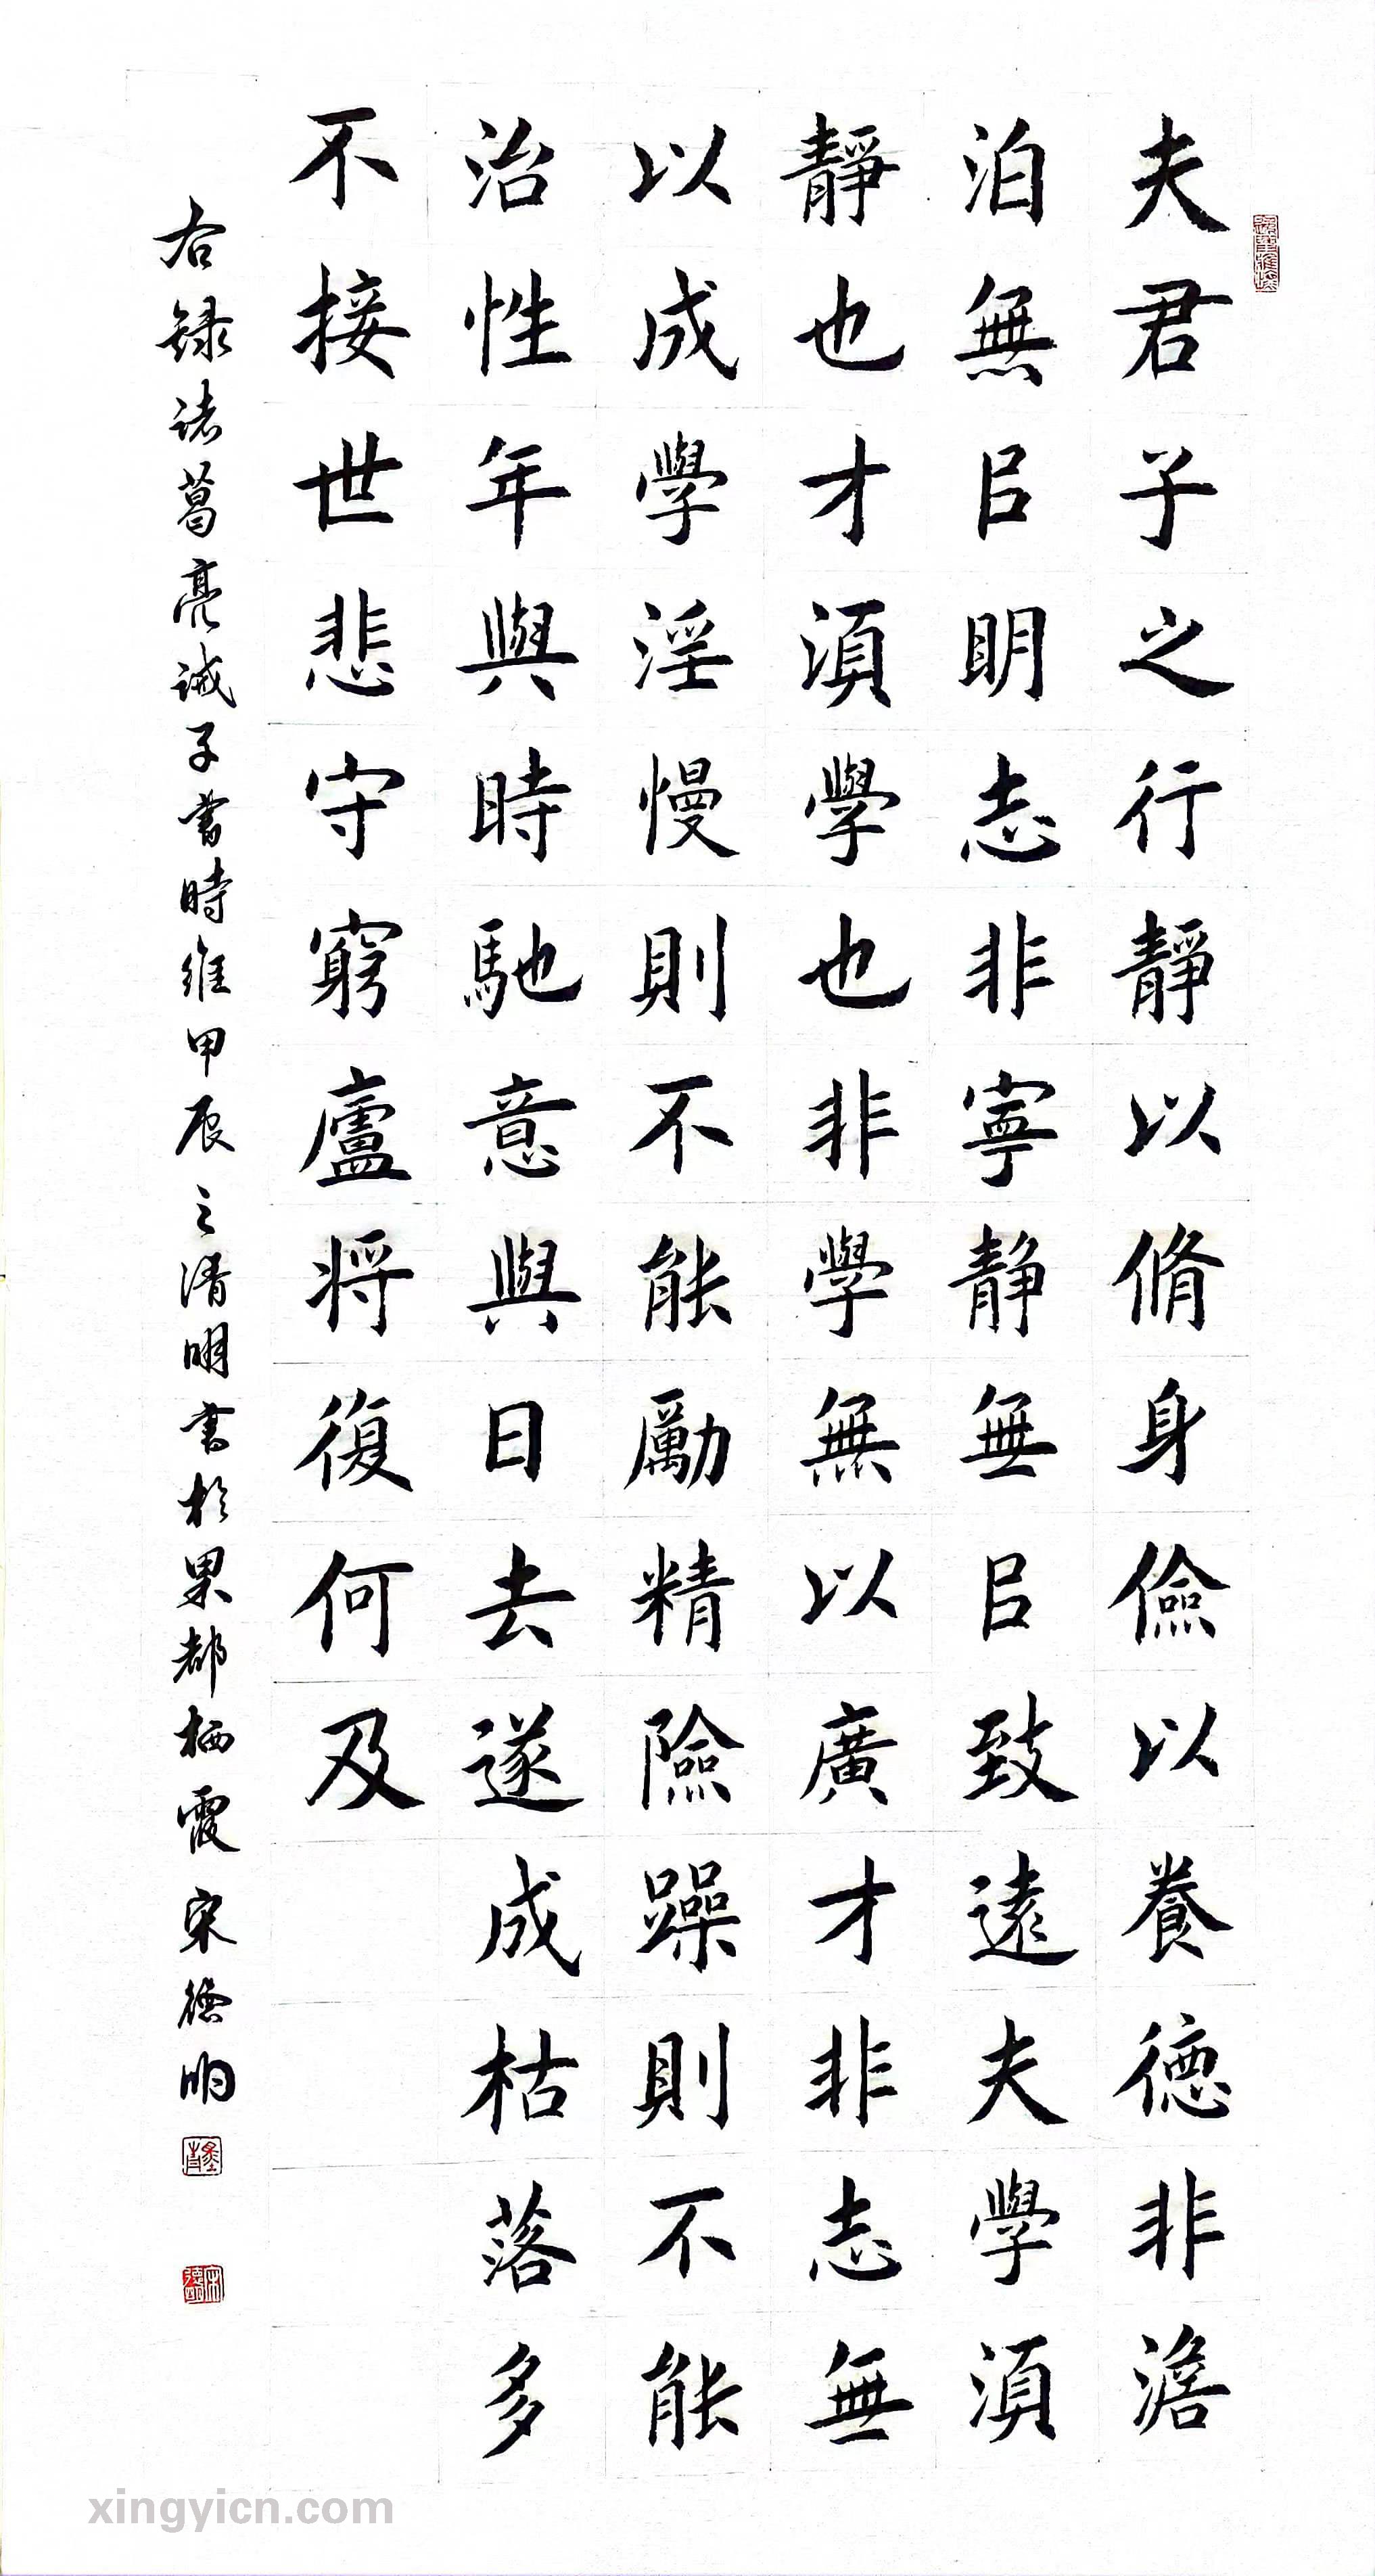 夫君子之行靜以脩身儉以養德非澹
泊無㠯明志非寧静無㠯致遠夫學須
靜也才須學也非學無以廣才非志無
以成學淫慢則不能勵精險躁則不能
治性年與時馳意與日去遂成枯落多
不接世悲守窮廬将復何及
右録诸葛亮诫子書時維甲辰之清明書於果都栖霞宋德明
xingyicn.com